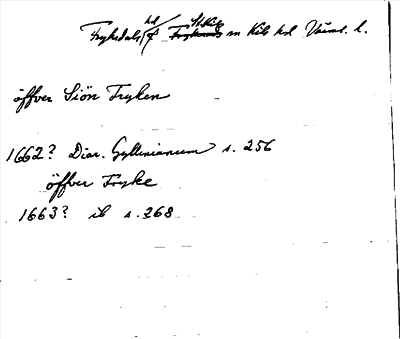 Fryksdals hd / St. Kils m Kils hd Värml. l.
öffver Siön Fryken
1662? Diar. Gyllenianum s. 256
öffver Fryke
1663? ib s. 268